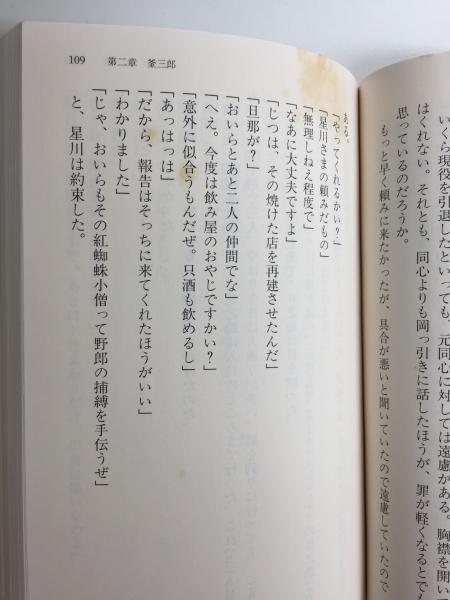 いくら現役を引退したといっても、元同心に対しては遠慮がある。胸襟を開い
はくれない。それとも、同心よりも岡っ引きに話したほうが、罪が軽くなるとでも
思っているのだろうか。
もっと早く頼みに来たかったが、具合が悪いと聞いていたので遠慮していたので
ある。
「やってくれるかい？」
「星川さまの頼みだもの」
「無理しねえ程度で」
「なあに大丈夫ですよ」
「じつは、その焼けた店を再建させたんだ」
「旦那が？」
「おいらとあと二人の仲間でな」
「へえ。今度は飲み屋のおやじですかい？」
「意外に似合うもんだぜ。只酒も飲めるし」
「あっはっは」
「だから、報告はそっちに来てくれたほうがいい」
「わかりました」
「じゃ、おいらもその紅蜘蛛小僧って野郎の捕縛を手伝うぜ」
と、星川は約束した。
109 第二章 釜三郎